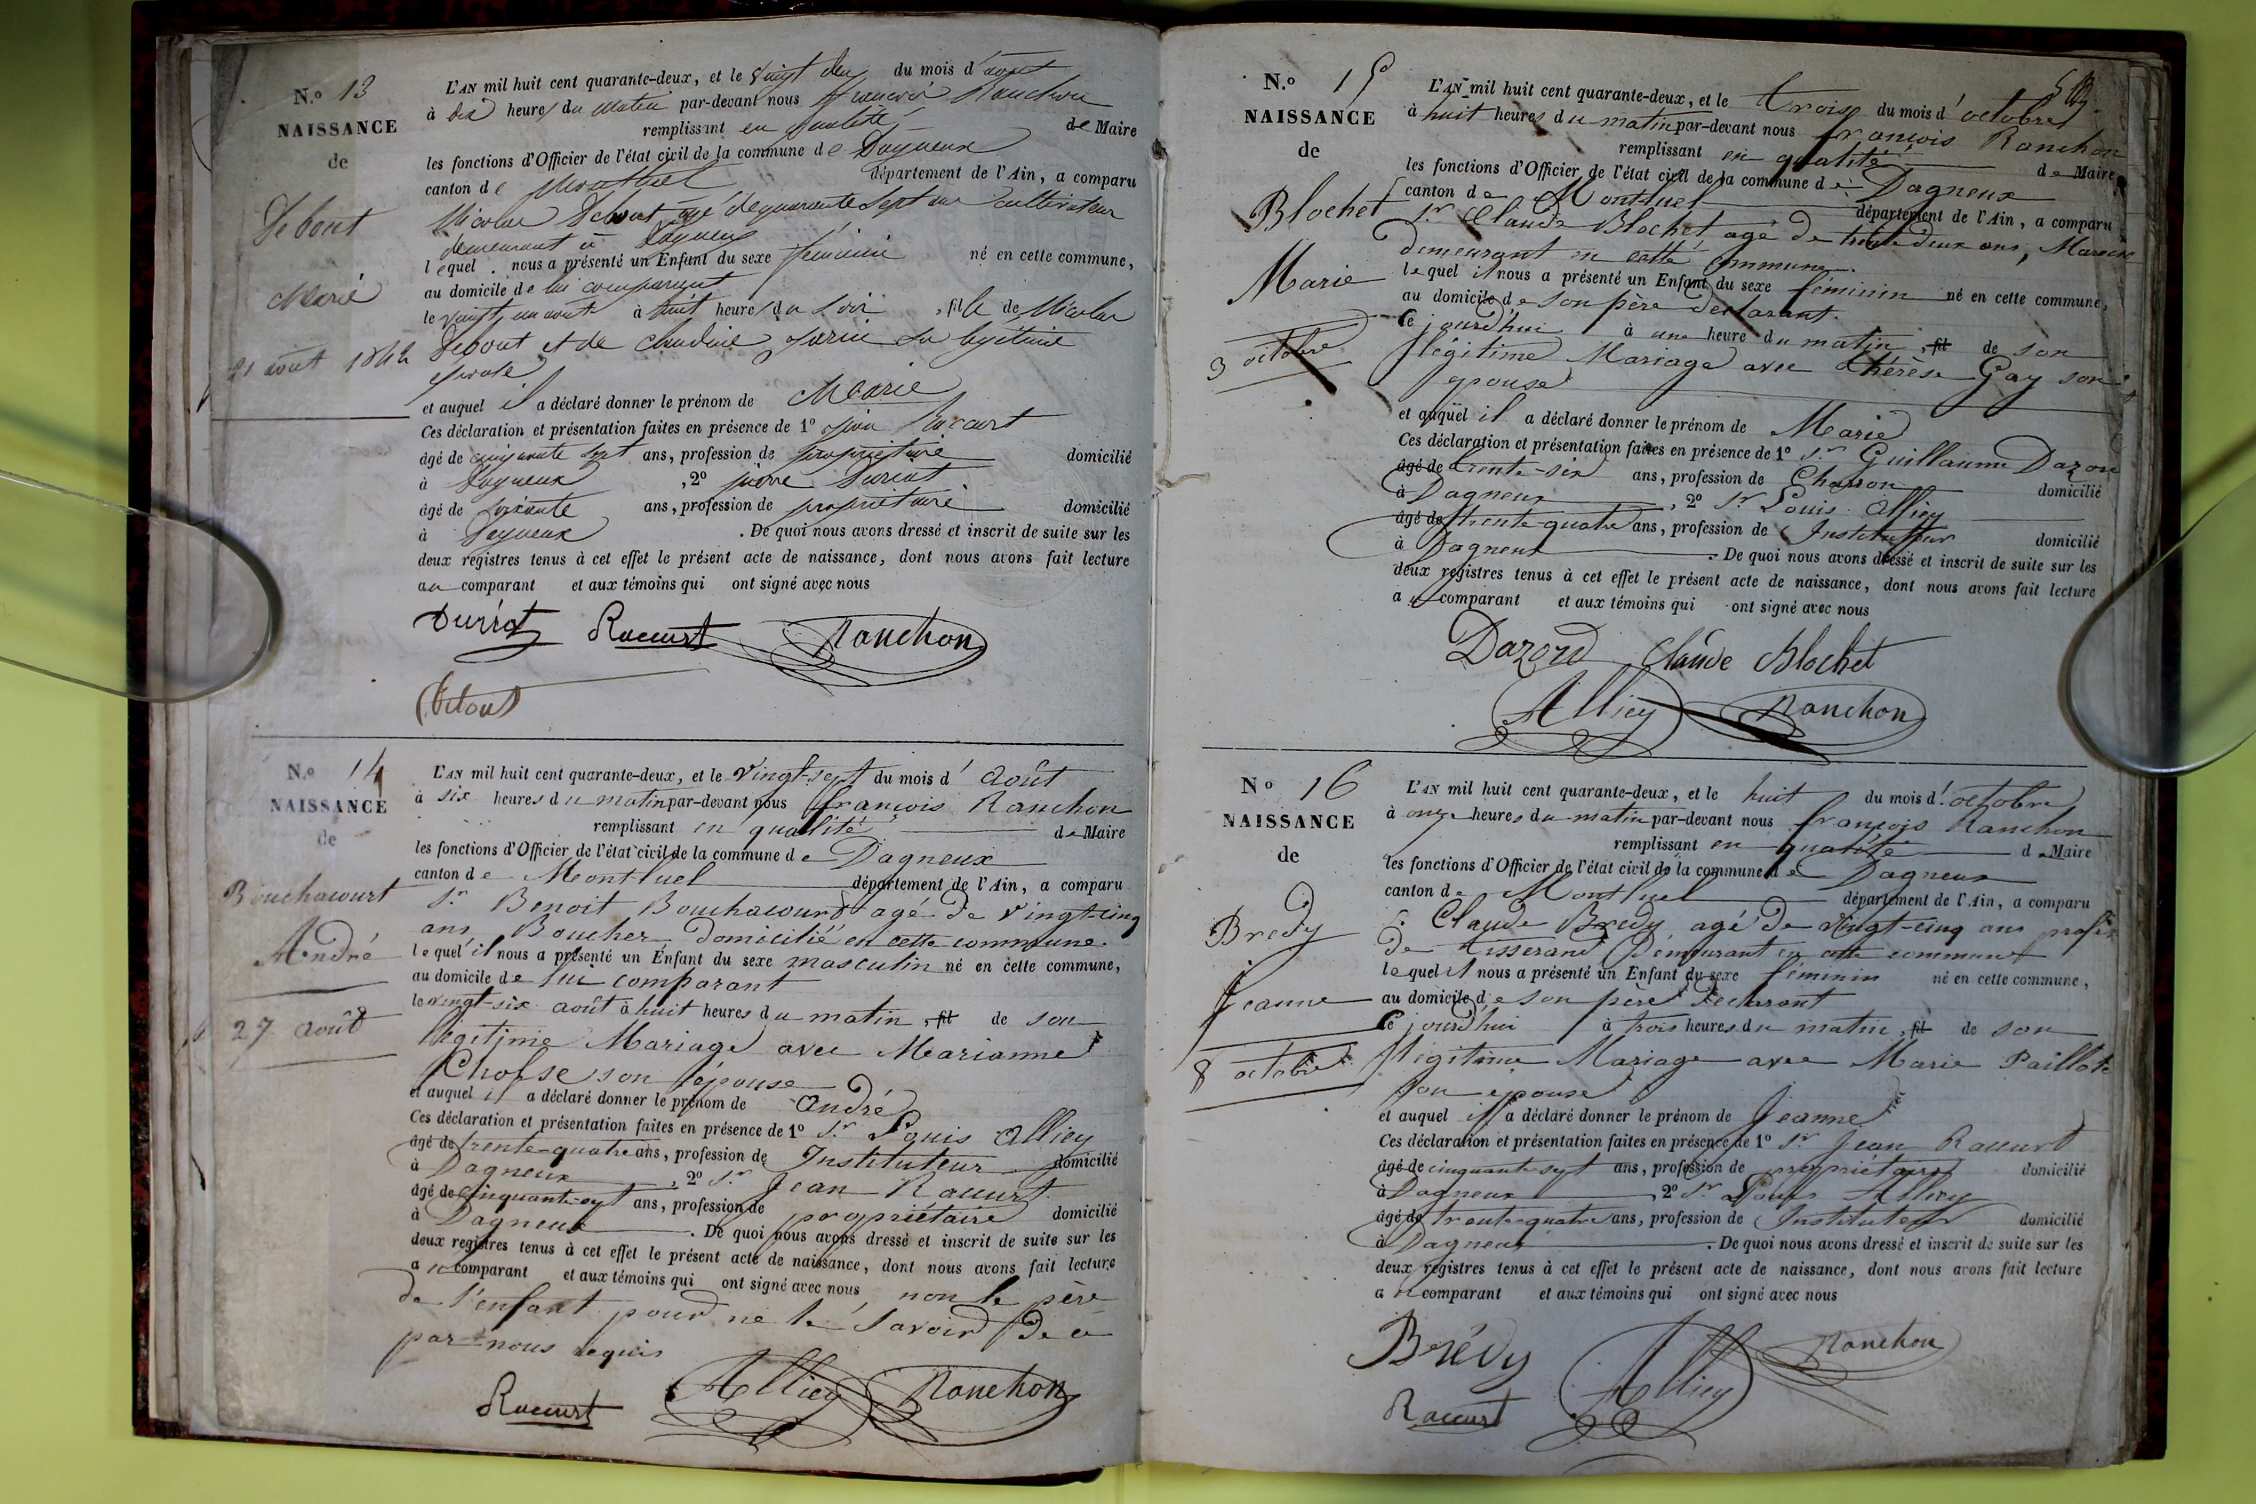 N.o 13
NAISSANCE
de
Debout
Marie
21 août 1842
L'AN mil huit cent quarante-deux, et le vingt deux du mois d'août
à dix heures du matin par-devant nous françois Ranchon
remplissant en qualité de Maire
les fonctions d'Officier de l'état civil de la commune de Dagneux
canton de Montluel département de l'Ain, a comparu
Nicolas Debout agé de quarante sept ans cultivateur
demeurant à Dagneux
lequel nous a présenté un Enfant du sexe féminin né en cette commune,
au domicile de lui comparant
le vingt un août à huit heures du soir, fille de Nicolas
Debout et de Claudine sa légitime
épouse
et auquel il a déclaré donner le prénom de Marie
Ces déclaration et présentation faites en présence de 1o jean Raccurt
âgé de cinquante sept ans, profession de propriétaire domicilié
à Dagneux, 2o pierre
âgé de soixante ans, profession de propriétaire domicilié
à Dagneux. De quoi nous avons dressé et inscrit de suite sur les
deux registres tenus à cet effet le présent acte de naissance, dont nous avons fait lecture
au comparant et aux témoins qui ont signé avec nous
Raccurt Ranchon
Debout
N.o 14
NAISSANCE
de
Bouchacourt
André
27 août
L'AN mil huit cent quarante-deux, et le vingt-sept du mois d'Août
à six heures du matin par-devant nous françois Ranchon
remplissant en qualité de Maire
les fonctions d'Officier de l'état civil de la commune de Dagneux
canton de Montluel département de l'Ain, a comparu
Sr Benoit Bouchacourt agé de vingt-cinq
ans, Boucher domicilié en cette commune.
lequel il nous a présenté un Enfant du sexe masculin né en cette commune,
au domicile de lui comparant
le vingt-six août à huit heures du matin, fil de son
légitime Mariage avec Marianne
son épouse
et auquel il a déclaré donner le prénom de André
Ces déclaration et présentation faites en présence de 1o Sr Louis Alliey
âgé de trente-quatre ans, profession de Instituteur domicilié
à Dagneux, 2o Sr Jean Raccurt
âgé de cinquante-sept ans, profession de propriétaire domicilié
à Dagneux. De quoi nous avons dressé et inscrit de suite sur les
deux registres tenus à cet effet le présent acte de naissance, dont nous avons fait lecture
au comparant et aux témoins qui ont signé avec nous non le père
de l'enfant pour ne le savoir de ce
par nous requis
Raccurt Alliey Ranchon
N.o 15
NAISSANCE
de
Blochet
Marie
3 octobre
L'AN mil huit cent quarante-deux, et le trois du mois d'octobre
à huit heures du matin par-devant nous françois Ranchon
remplissant en qualité de Maire
les fonctions d'Officier de l'état civil de la commune de Dagneux
canton de Montluel département de l'Ain, a comparu
Sr Claude Blochet agé de trente deux ans,
demeurant en cette commune.
lequel il nous a présenté un Enfant du sexe féminin né en cette commune,
au domicile de son père déclarant.
Ce jourd'hui à une heure du matin, fil de son
légitime Mariage avec thérèse Gay son
épouse
et auquel il a déclaré donner le prénom de Marie
Ces déclaration et présentation faites en présence de 1o Sr Guillaume Dazord
âgé de trente-six ans, profession de Charron domicilié
à Dagneux, 2o Sr Louis Alliey
âgé de trente-quatre ans, profession de Instituteur domicilié
à Dagneux. De quoi nous avons dressé et inscrit de suite sur les
deux registres tenus à cet effet le présent acte de naissance, dont nous avons fait lecture
au comparant et aux témoins qui ont signé avec nous
Dazord Claude Blochet
Alliey Ranchon
No 16
NAISSANCE
de
Bredy
Jeanne
8 octobre
L'AN mil huit cent quarante-deux, et le huit du mois d'octobre
à onze heures du matin par-devant nous françois Ranchon
remplissant en qualité de Maire
les fonctions d'Officier de l'état civil de la commune de Dagneux
canton de Montluel département de l'Ain, a comparu
Sr Claude Bredy, agé de vingt-cinq ans profes
de tisserand Demeurant en cette commune
lequel il nous a présenté un Enfant du sexe féminin né en cette commune,
au domicile de son père déclarant
Ce jourd'hui à trois heures du matin, fil de son
légitime Mariage avec Marie
son épouse
et auquel il a déclaré donner le prénom de Jeanne
Ces déclaration et présentation faites en présence de 1o Sr Jean Raccurt
âgé de cinquante-sept ans, profession de propriétaire domicilié
à Dagneux, 2o Sr Louis Alliey
âgé de trente-quatre ans, profession de Instituteur domicilié
à Dagneux. De quoi nous avons dressé et inscrit de suite sur les
deux registres tenus à cet effet le présent acte de naissance, dont nous avons fait lecture
au comparant et aux témoins qui ont signé avec nous
Brédy Alliey Ranchon
Raccurt